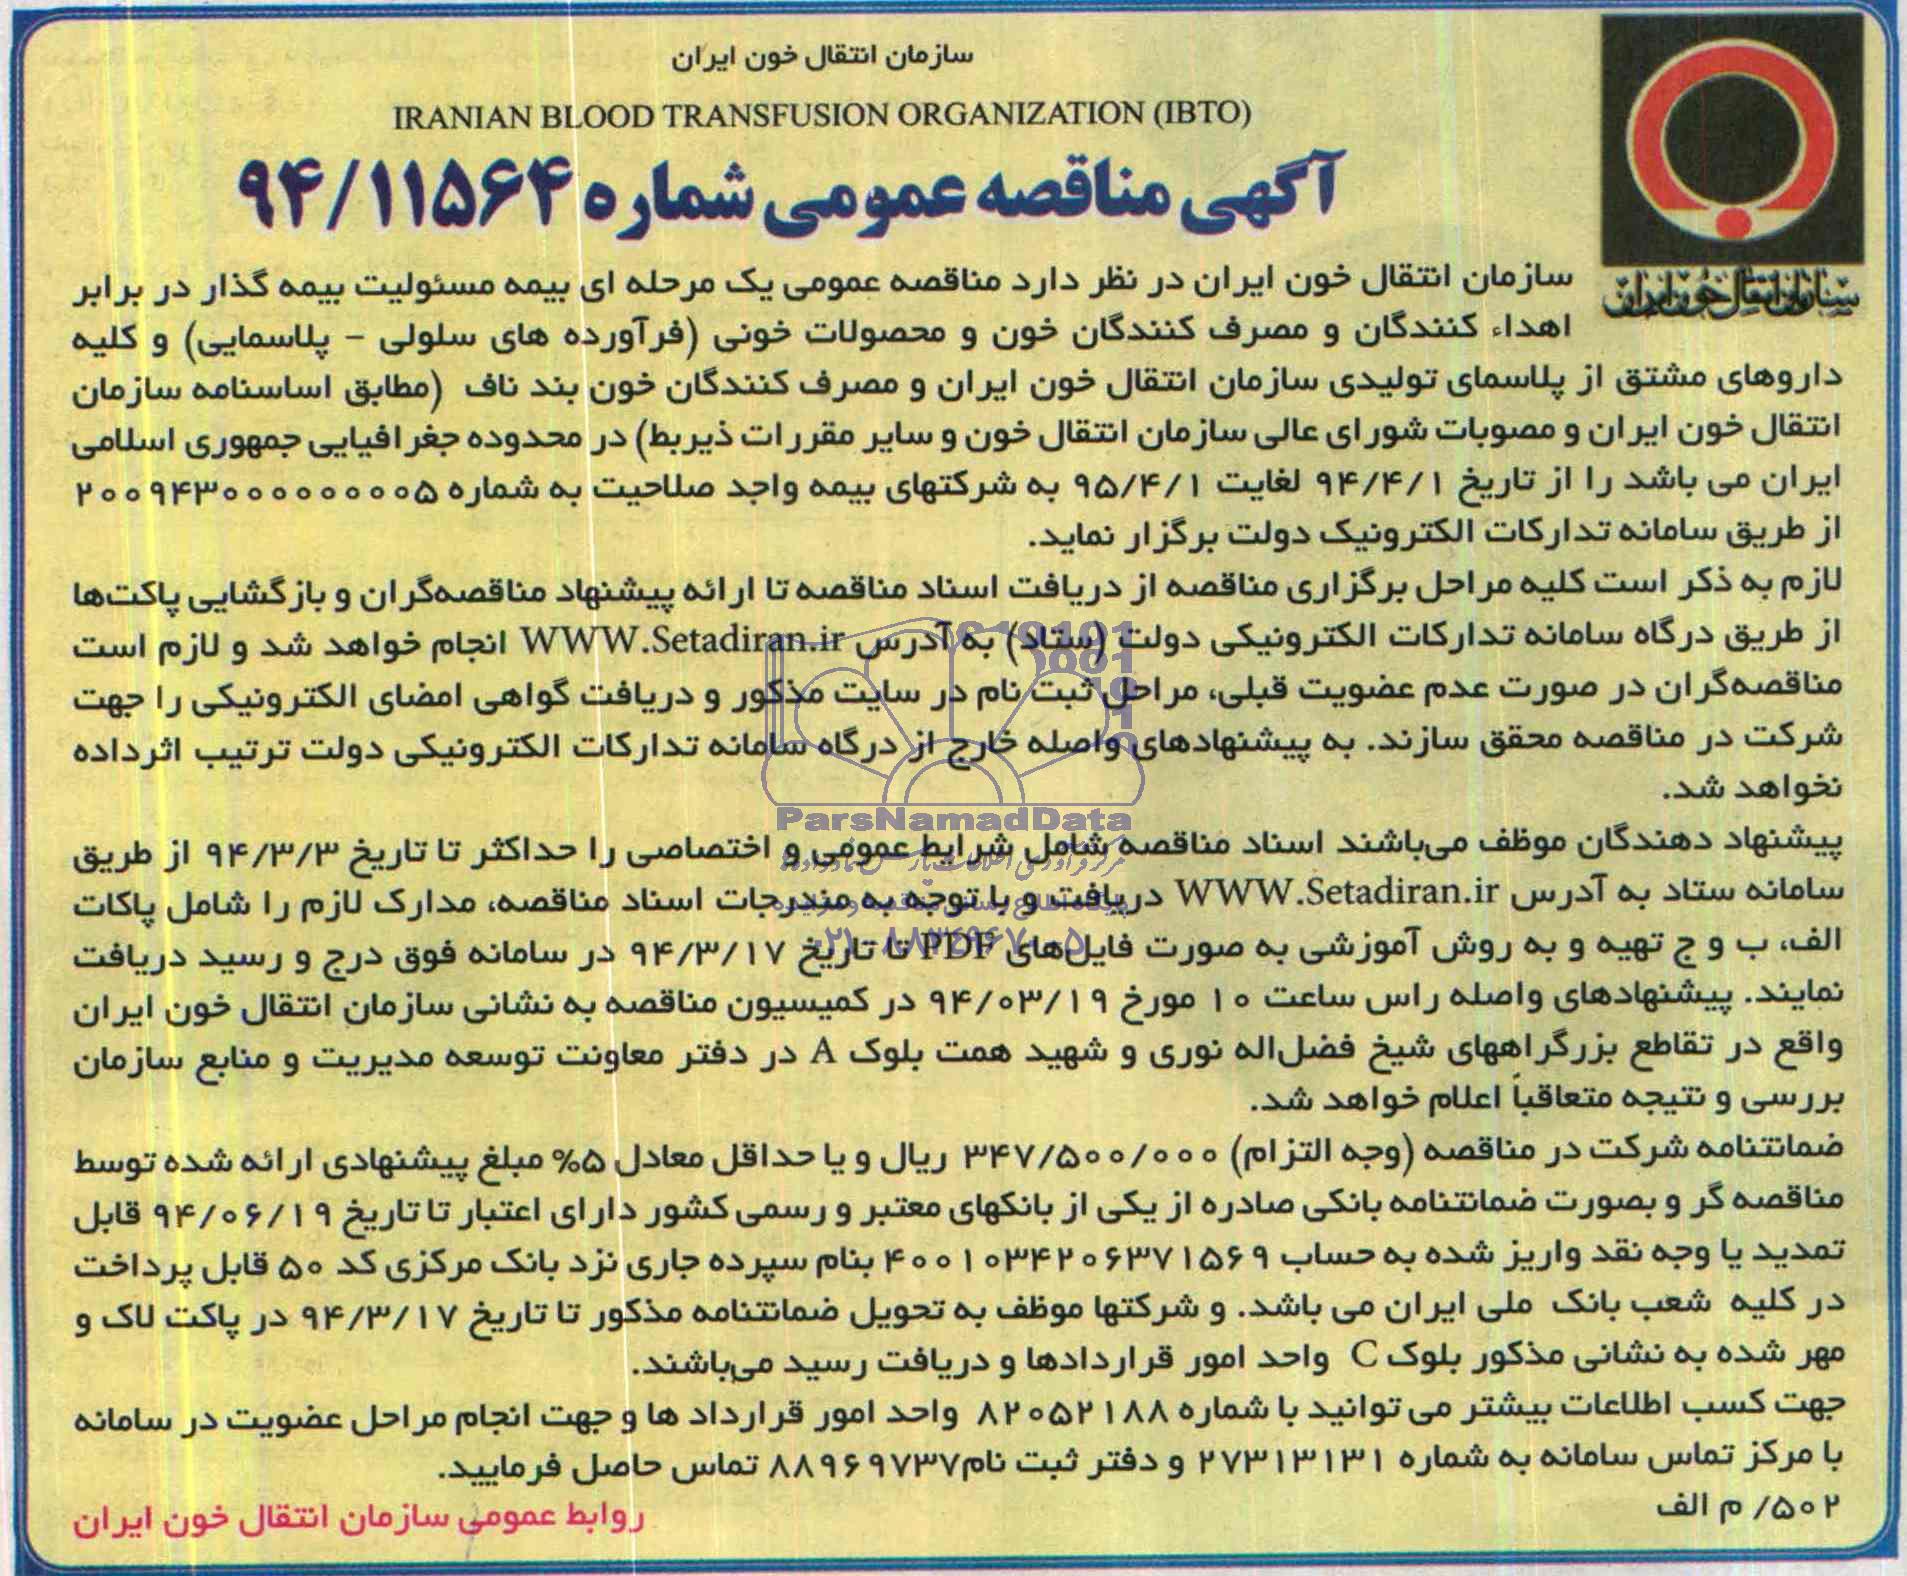 سازمان انتقال خون ایران
IRANIAN BLOOD TRANSFUSION ORGANIZATION (IBTO)
آگهی مناقصه عمومی شماره ۹۴/۱۱۵۶۴
سازمان انتقال خون ایران
سازمان انتقال خون ایران در نظر دارد مناقصه عمومی یک مرحله ای بیمه مسئولیت بیمه گذار در برابر
اهداء کنندگان و مصرف کنندگان خون و محصولات خونی (فرآورده های سلولی - پلاسمایی) و کلیه
داروهای مشتق از پلاسمای تولیدی سازمان انتقال خون ایران و مصرف کنندگان خون بند ناف (مطابق اساسنامه سازمان
انتقال خون ایران و مصوبات شورای عالی سازمان انتقال خون و سایر مقررات ذیربط) در محدوده جغرافیایی جمهوری اسلامی
ایران می باشد را از تاریخ ۹۴/۴/۱ لغایت ۹۵/۴/۱ به شرکتهای بیمه واجد صلاحیت به شماره ۲۰۰۹۴۳۰۰۰۰۰۰۰۰۰۵
از طریق سامانه تدارکات الکترونیک دولت برگزار نماید.
لازم به ذکر است کلیه مراحل برگزاری مناقصه از دریافت اسناد مناقصه تا ارائه پیشنهاد مناقصه‌گران و بازگشایی پاکت‌ها
از طریق درگاه سامانه تدارکات الکترونیکی دولت (ستاد) به آدرس WWW.Setadiran.ir انجام خواهد شد و لازم است
مناقصه‌گران در صورت عدم عضویت قبلی، مراحل ثبت نام در سایت مذکور و دریافت گواهی امضای الکترونیکی را جهت
شرکت در مناقصه محقق سازند. به پیشنهادهای واصله خارج از درگاه سامانه تدارکات الکترونیکی دولت ترتیب اثرداده
نخواهد شد.
ParsNamadData
پیشنهاد دهندگان موظف می‌باشند اسناد مناقصه شامل شرایط عمومی و اختصاصی را حداکثر تا تاریخ ۹۴/۳/۳ از طریق
سامانه ستاد به آدرس WWW.Setadiran.ir دریافت و با توجه به مندرجات اسناد مناقصه، مدارک لازم را شامل پاکات
الف، ب و ج تهیه و به روش آموزشی به صورت فایل‌های PDF تا تاریخ ۹۴/۳/۱۷ در سامانه فوق درج و رسید دریافت
۰۲۱-۸۸۳۴۹۶۷۰-۵
نمایند. پیشنهادهای واصله راس ساعت ۱۰ مورخ ۹۴/۰۳/۱۹ در کمیسیون مناقصه به نشانی سازمان انتقال خون ایران
واقع در تقاطع بزرگراههای شیخ فضل‌اله نوری و شهید همت بلوک A در دفتر معاونت توسعه مدیریت و منابع سازمان
بررسی و نتیجه متعاقباً اعلام خواهد شد.
ضمانتنامه شرکت در مناقصه (وجه التزام) ۳۴۷/۵۰۰/۰۰۰ ریال و یا حداقل معادل ۵% مبلغ پیشنهادی ارائه شده توسط
مناقصه گر و بصورت ضمانتنامه بانکی صادره از یکی از بانکهای معتبر و رسمی کشور دارای اعتبار تا تاریخ ۹۴/۰۶/۱۹ قابل
تمدید یا وجه نقد واریز شده به حساب ۴۰۰۱۰۳۴۲۰۶۳۷۱۵۶۹ بنام سپرده جاری نزد بانک مرکزی کد ۵۰ قابل پرداخت
در کلیه شعب بانک ملی ایران می باشد. و شرکتها موظف به تحویل ضمانتنامه مذکور تا تاریخ ۹۴/۳/۱۷ در پاکت لاک و
مهر شده به نشانی مذکور بلوک C واحد امور قراردادها و دریافت رسید می‌باشند.
جهت کسب اطلاعات بیشتر می توانید با شماره ۸۲۰۵۲۱۸۸ واحد امور قرارداد ها و جهت انجام مراحل عضویت در سامانه
با مرکز تماس سامانه به شماره ۲۷۳۱۳۱۳۱ و دفتر ثبت نام۸۸۹۶۹۷۳۷ تماس حاصل فرمایید.
۵۰۲/ م الف
روابط عمومی سازمان انتقال خون ایران